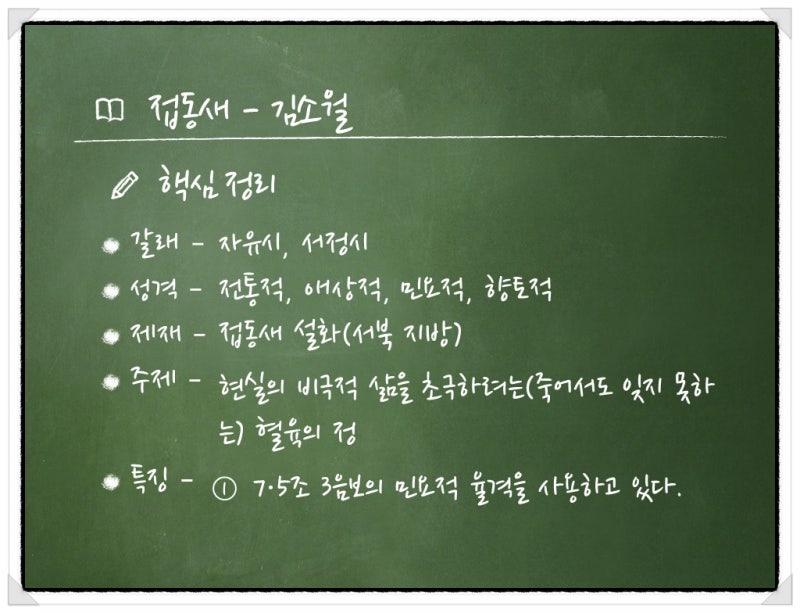 접동새 - 김소월
핵심 정리
갈래 - 자유시, 서정시
성격 - 전통적, 애상적, 민요적, 향토적
제재 - 접동새 설화(서북 지방)
주제 - 현실의 비극적 삶을 초극하려는(죽어서도 잊지 못하
는) 혈육의 정
특징 - ① 7·5조 3음보의 민요적 율격을 사용하고 있다.